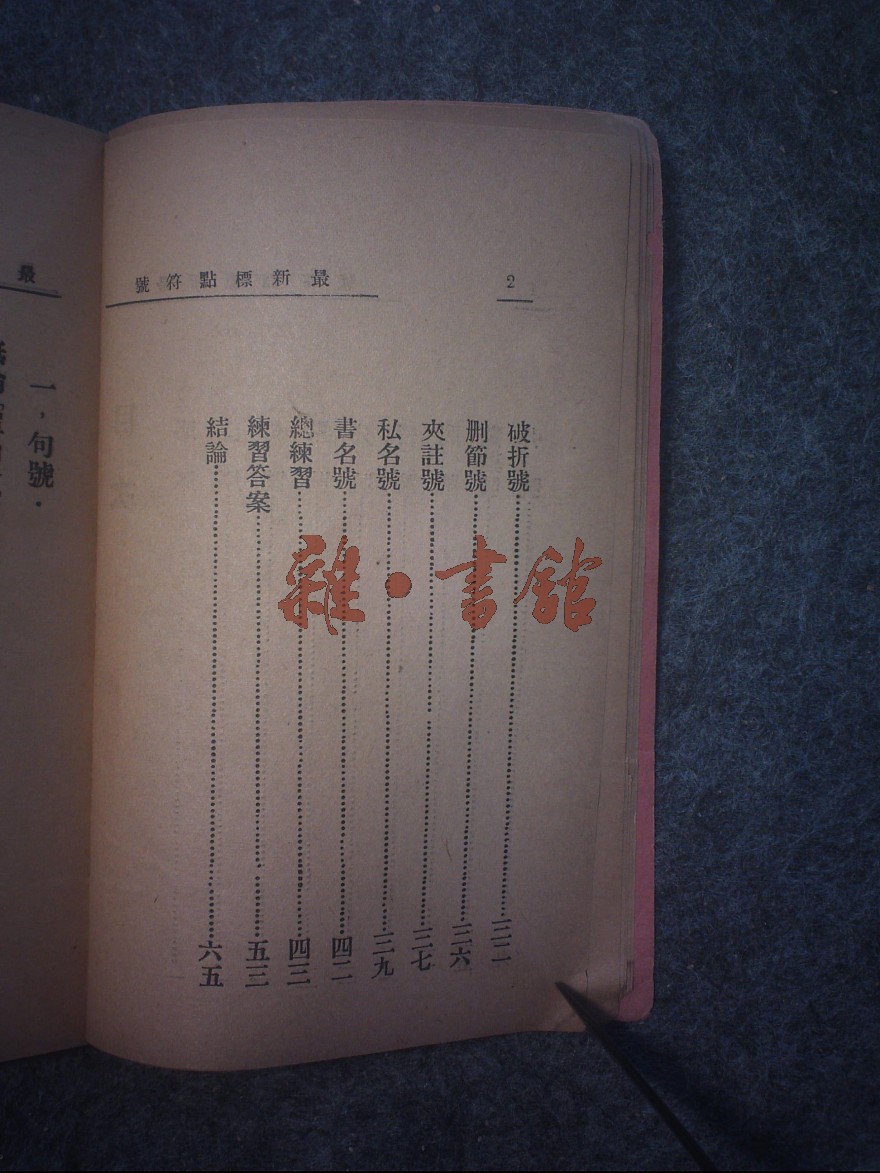 2
最新標點符號
破折號……三二
刪節號……三六
夾註號……三七
私名號……三九
書名號……四二
總練習……四三
練習答案……五三
結論……六五
最
一，句號．
雜·書館